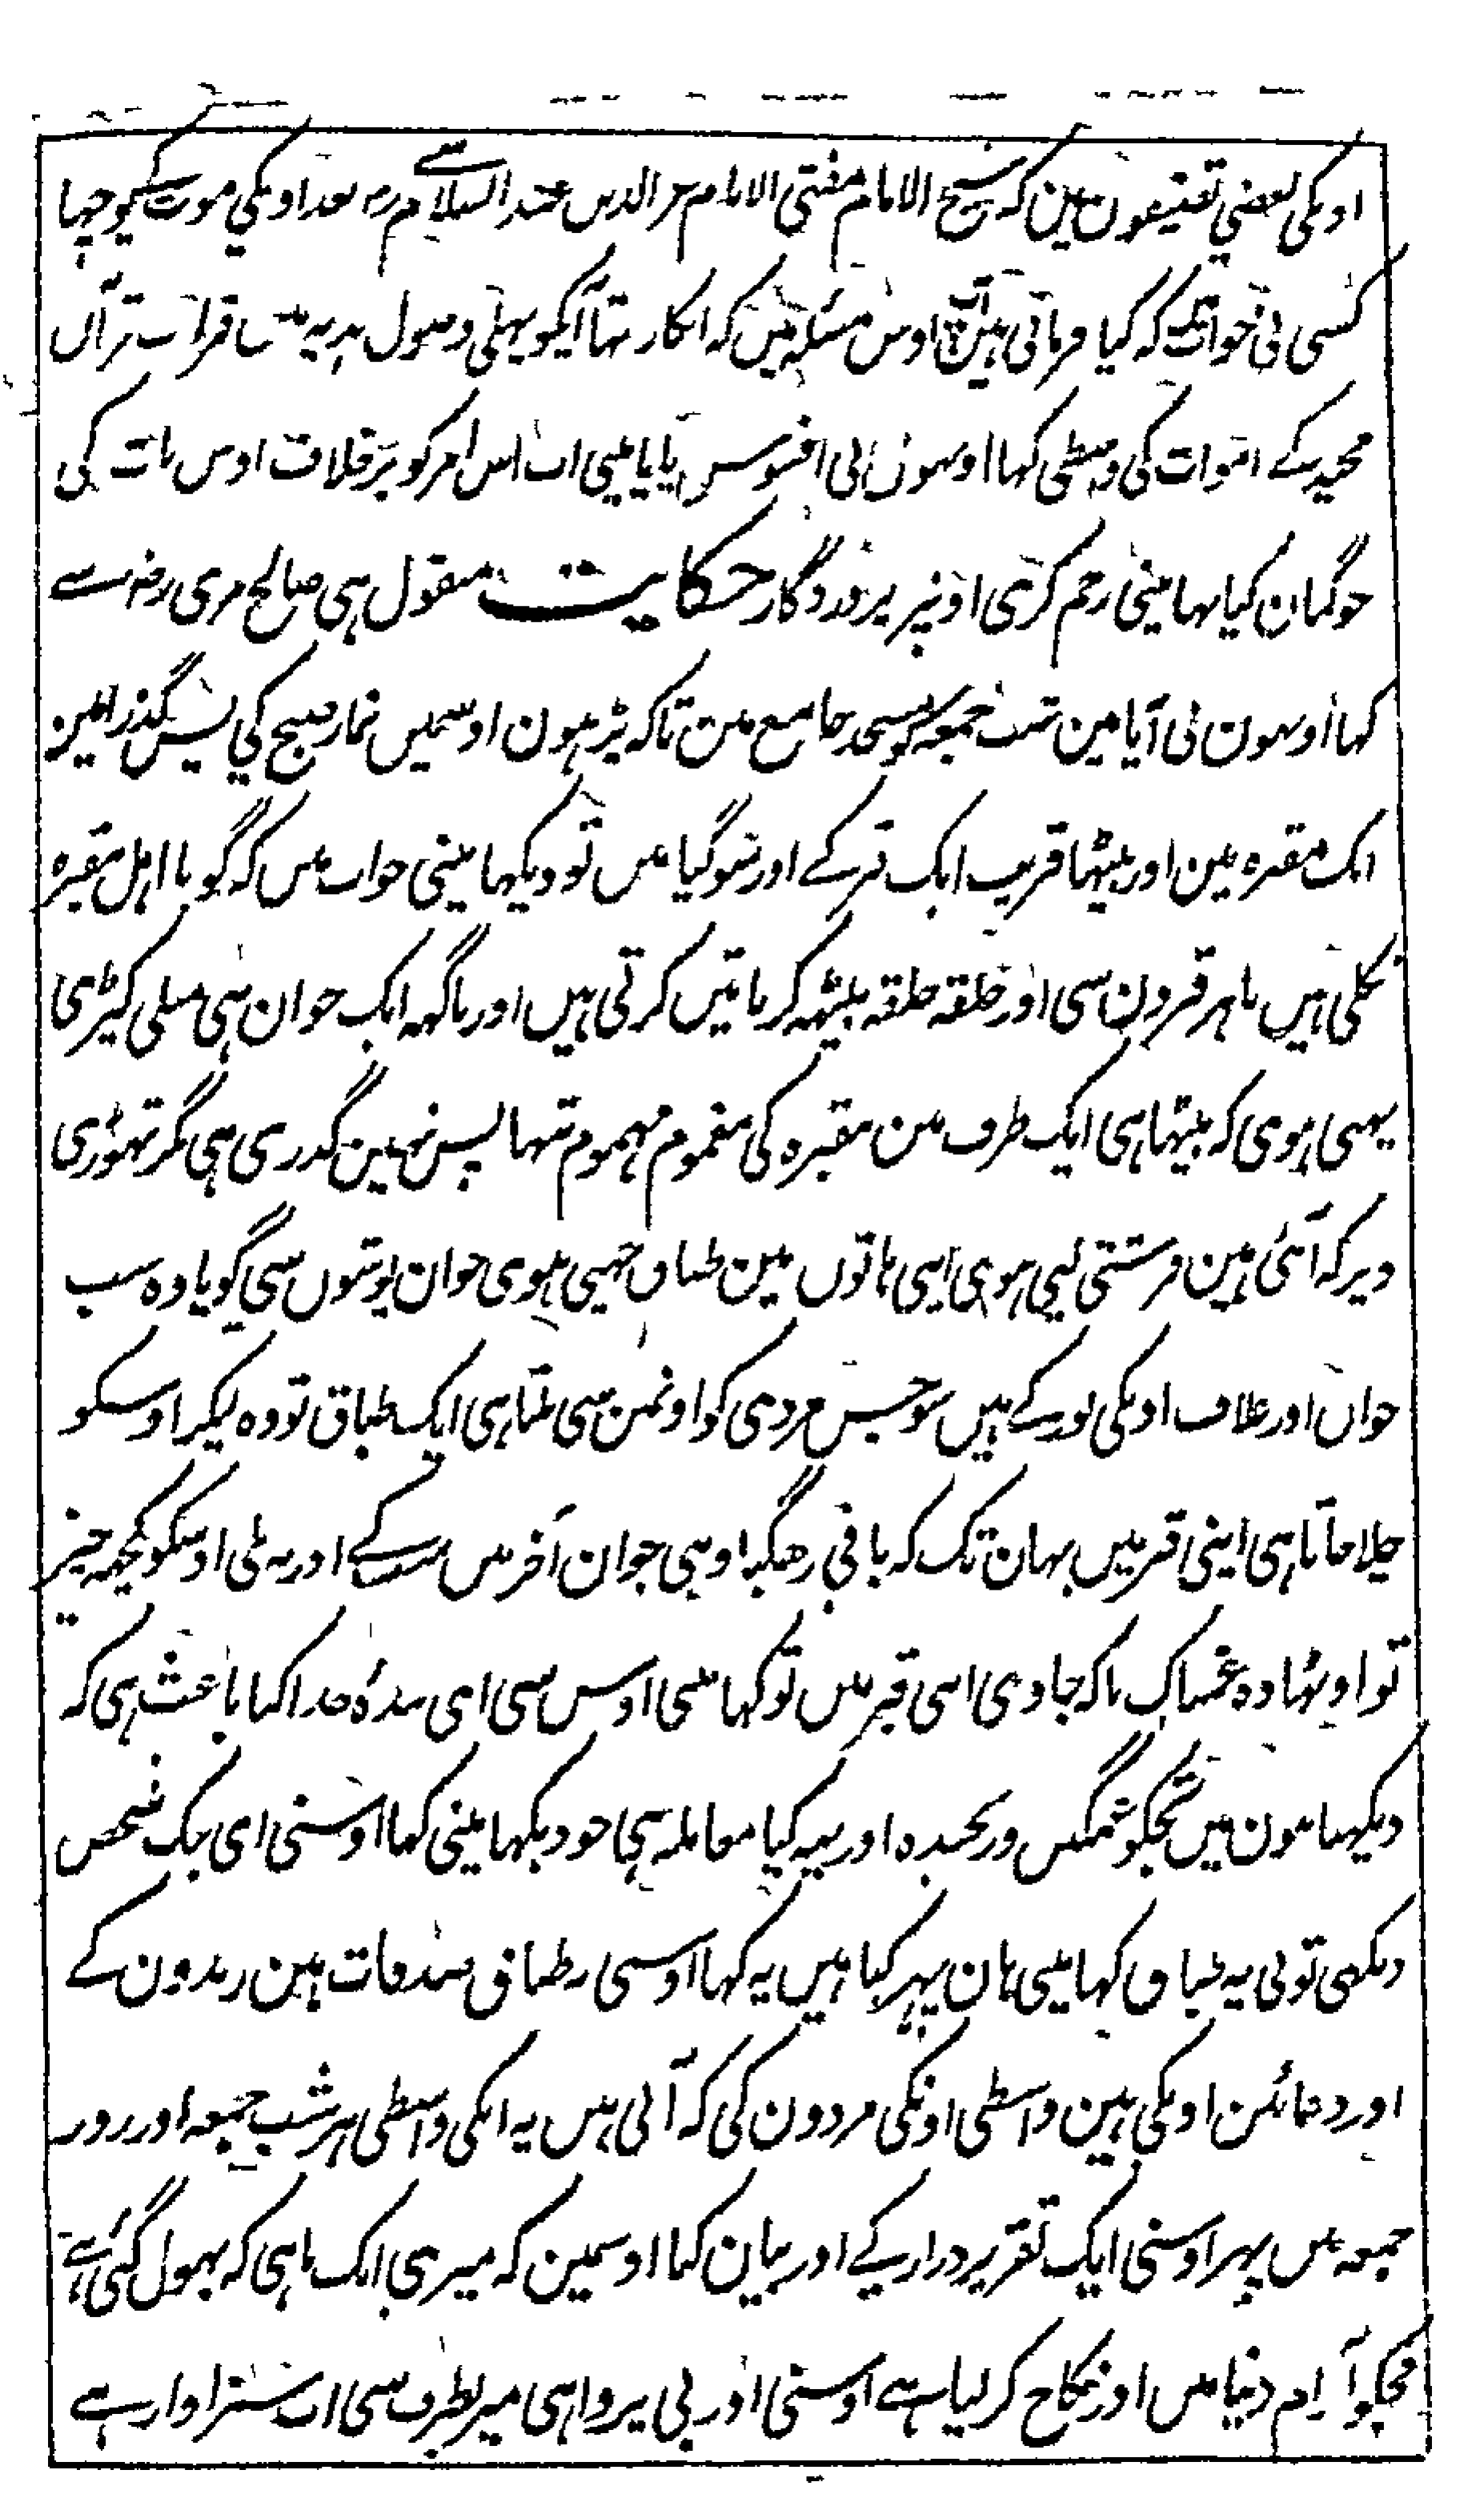 اونکی بعضی تصنیفون مین که شیخ الامام مفتی الانام عز الدین عبد السلام سے بعد اونکی موت کے پوچہا
کسی نی خواب مین که کیا فرماتی ہین آپ اوس مسئله مین که انکار تہا آپکو یہلی وصول ہدیه مین قرات قرآن
مجید کے اموات کی واسطی کہا اونہون نی افسوس پایا مینی اب اس امر کو برخلاف اوس بات کی
جو گمان کیا تہا مینی رحم کری اونپر پروردگار حکایت منقول ہی صالح مری رض سے
کہا اونہون نی آیا مین شب جمعه کو مسجد جامع مین تاکه پڑہون اوسمین نماز صبح کی پس گذرا مین
ایک مقبره مین اور بیٹہا قریب ایک قبر کے اور سو گیا مین تو دیکہا مینی خواب مین که گویا اہل مقبره
نکلی ہین باہر قبرون سی اور حلقه حلقه بیٹہه کر باتین کرتی ہین اور ناگہه ایک جوان ہی میلی کپڑی
پہنی ہوی که بیٹہا ہی ایک طرف مین مقبره کی مغموم مہموم تنہا پس نہین گذری ہی مگر تہوڑی
دیر که آئی ہین فرشتی لیی ہوی اپنی ہاتون مین طباق چہپی ہوی خوان پوشون سی گویا وه سب
خوان اور غلاف اونکی نور کے ہین سو جس مردی کو اونمین سی ملتا ہی ایک طباق تو وه لیکر اوسکو
چلا جاتا ہی اپنی قبر مین یہان تک که باقی رہگیا وہی جوان آخر مین سب کے اور نه ملی اوسکو کچہه چیز
تو اوٹہا وه غمناک تاکه جاوی اپنی قبر مین تو کہا مینی اوس سی ای بنده خدا کیا باعث ہی که
دیکہتا ہون مین تجکو غمگین و رنجیده اور یه کیا معامله ہی جو دیکہا مینی کہا اوسنی ای نیک شخص
دیکہی تونی یه طباق کہا مینی ہان پہر کیا ہین یه کہا اوسنی یه طباق صدقات ہین زندون کے
اور دعائین اونکی ہین واسطی اونکی مردون کی که آتی ہین یه انکی واسطی ہر شب جمعه اور روز
جمعه مین پہر اوسنی ایک تقریر دراز کے اور بیان کیا اوسمین که میری ایک ما ہی که بہول گئی ہے
مجکو آرام دنیا مین اور نکاح کر لیا ہے اوسنی اور بی پروا ہی میر یطرف سی اب سزاوار ہے